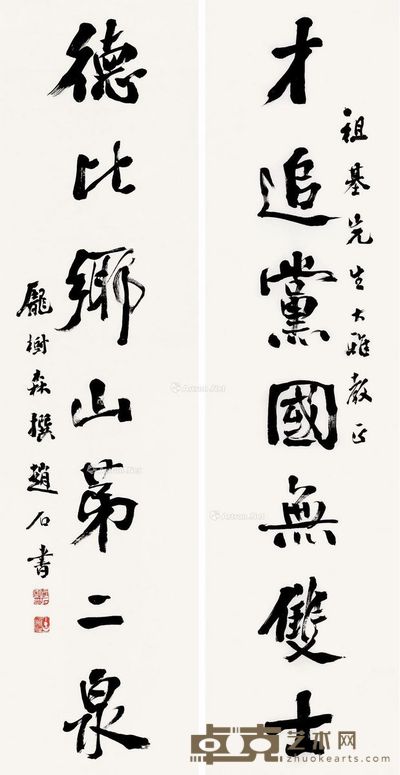 祖基先生大雅教正
才追黨國無雙士
德比鄉山第二泉
龐樹森撰趙石書
Artron.Net
Artron.Net
Artron.Net
卓克艺术网
www.zhuokearts.com